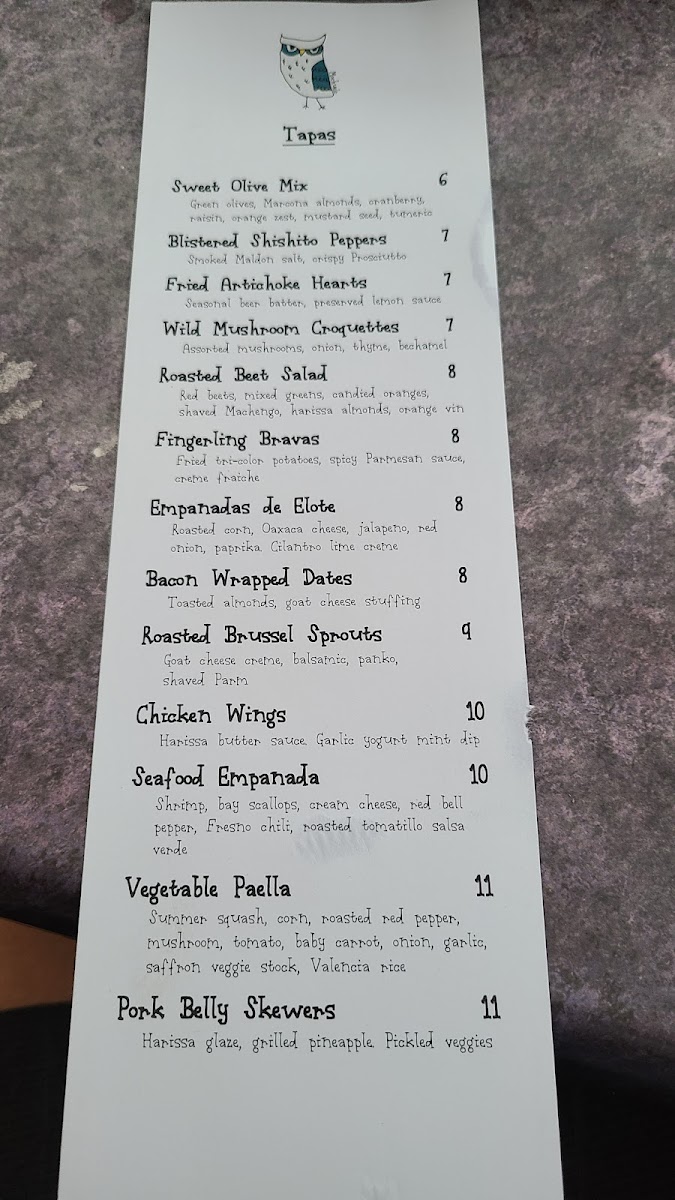 Tapas
Sweet Olive Mix 6
Green olives, Marcona almonds, cranberry,
raisin, orange zest, mustard seed, tumeric
Blistered Shishito Peppers 7
Smoked Maldon salt, crispy Prosciutto
Fried Artichoke Hearts 7
Seasonal beer batter, preserved lemon sauce
Wild Mushroom Croquettes 7
Assorted mushrooms, onion, thyme, bechamel
Roasted Beet Salad 8
Red beets, mixed greens, candied oranges,
shaved Machengo, harissa almonds, orange vin
Fingerling Bravas 8
Fried tri-color potatoes, spicy Parmesan sauce,
creme fraiche
Empanadas de Elote 8
Roasted corn, Oaxaca cheese, jalapeno, red
onion, paprika. Cilantro lime creme
Bacon Wrapped Dates 8
Toasted almonds, goat cheese stuffing
Roasted Brussel Sprouts 9
Goat cheese creme, balsamic, panko,
shaved Parm
Chicken Wings 10
Harissa butter sauce. Garlic yogurt mint dip
Seafood Empanada 10
Shrimp, bay scallops, cream cheese, red bell
pepper, Fresno chili, roasted tomatillo salsa
verde
Vegetable Paella 11
Summer squash, corn, roasted red pepper,
mushroom, tomato, baby carrot, onion, garlic,
saffron veggie stock, Valencia rice
Pork Belly Skewers 11
Harissa glaze, grilled pineapple. Pickled veggies